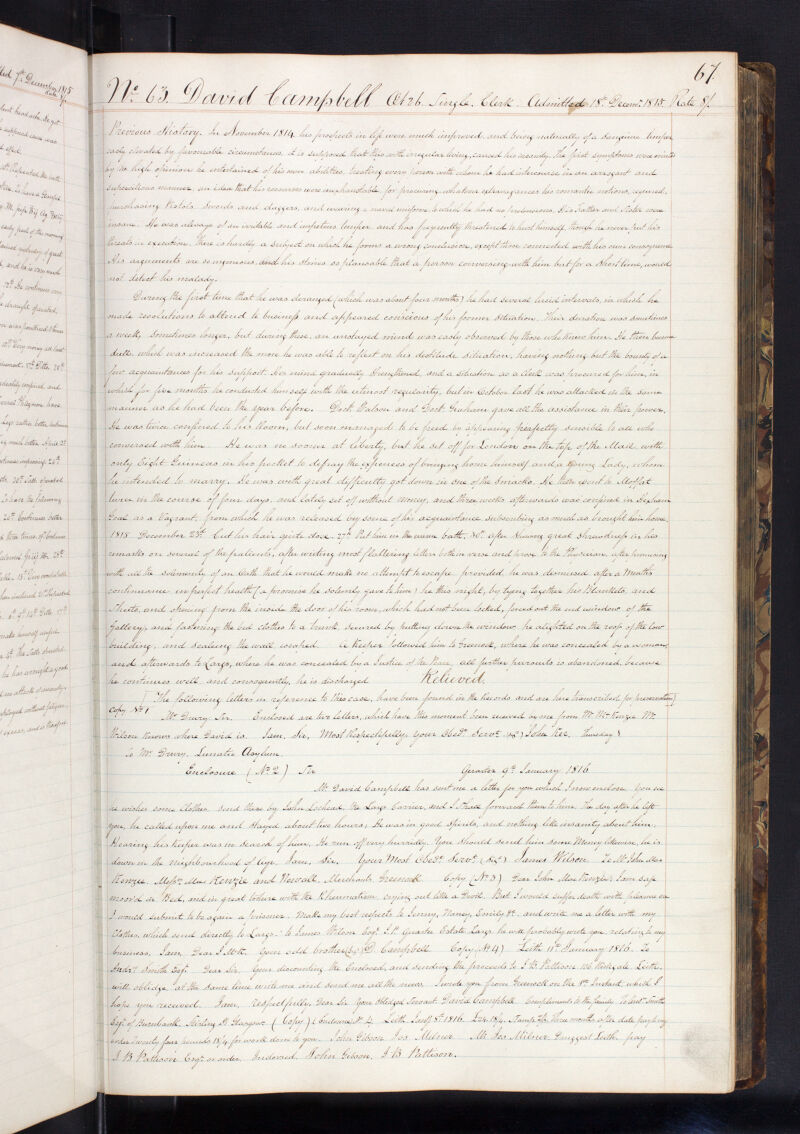 67
No. 63. David Campbell Æt 26. Single. Clerk. Admitted 18th Decemr. 1815. Rate 8/.
Previous History. In November 1814, his prospects in life were much improved, and being naturally of a sanguine temper
easily elevated by favourable circumstances, it is supposed that this with irregular living, caused his insanity. The first symptoms were
by the high opinion he entertained of his own abilities, treating every person with whom he had intercourse in an arrogant and
supercilious manner, an idea that his resources were inexhaustible for procuring whatever extravagances his romantic notions required,
purchasing Pistols, Swords and daggers, and wearing a naval uniform to which he had no pretensions. His Father and Sister were
insane. He was always of an irritable and impetuous temper and has frequently threatened to hurt himself, though he never put his
threats in execution. There is hardly a subject on which he forms a wrong conclusion, except those connected with his own consequence.
His arguements are so ingenious, and his stories so plausable that a person conversing with him but for a short time, would
not detect his malady.
During the first time that he was deranged (which was about four months) he had several lucid intervals, in which he
made resolutions to attend to business and appeared conscious of his former situation. Their duration was sometimes
a week, sometimes longer, but during these, an unstayed mind was easly observed by those who knew him. He then became
dull, which was increased the more he was able to reflect on his destitute situation, having nothing but the bounty of a
few acquaintances for his support. His mind gradually strengthened, and a situation as a Clerk was procured for him, in
which for five months he conducted himself with the utmost regularity, but in October last he was attacked in the same
manner as he had been the year before. Doctr. and Doctr. Graham gave all the assistance in their power.
He was twice confined to his Room, but soon managed to be freed by appearing perfectly sensible to all who
conversed with him. He was no sooner at liberty, but he set off for London on the top of the Mail, with
only Eight Guineas in his pocket to defray the expences of bringing home himself and a Young Lady, whom
he intended to marry. He was with great difficulty got down in one of the Smacks. He then went to Moffat
twice in the course of four days, and lately set off without money, and three weeks afterwards was confined in
Goal as a Vagrant, from which he was released by some of his acquaintance subscribing as much as brought him home.
1815 December 23d. Cut his hair quite close. 27th Put him in the warm bath. 30th After shewing great shrewdness in his
remarks on several of the patients, after writing most flattering letters both in verse and prose to the Physician, after promising
with all the solemnity of an Oath that he would make no attempt to escape, provided he was dismissed after a Months
continuance in perfect health (a promise he solemly gave to him) he this night, by tying together his Blankets, and
Sheets, and opening from the inside the door of his room, which had not been locked, forced out the end window of the
Gallery, and fastening the bed clothes to a trunk, secured by putting down the window, he alighted on the roof of the low
building, and scaling the wall escaped. A Keeper followed him to Greenock, where he was concealed by a woman,
and afterwards to Largs, where he was concealed by a Justice of the Peace, all further pursuits is abandoned, because
he continues well and consequently, he is discharged Relieved.
[The following letters in reference to this case, have been found in the Records and are here transcribed for preservation]
Copy No. 1 Mr. Drury. Sir. Enclosed are two letters, which have this moment been received by me from Mr. McKenzie. Mr.
Wilson knows where David is. I am, Sir, Most Respectfully, Your Obedt. Servt. John Thursday
To Mr. Drury, Lunatic Asylum.
Enclosure (No. 2) Sir Quarter 9th January 1816
Mr. David Campbell has sent me a letter for you which I now enclose. You see
he wishes some Clothes, send these by John Lochead, the Largs Carrier, and I shall forward them to him. The day after he left
you, he called upon me and stayed about two hours. He was in good spirits, and nothing like insanity about him.
Hearing his keeper was in search of him, He run off very hurridly. You should send him some Money likewise, he is
down in the neighbourhood of Ayr. I am, Sir, Your Most Obedt. Servt. James Wilson To Mr. John Mac
Kenzie, Messrs. Mac Kenzie and Newall, Merchants, Greenock Copy (No. 3) Dear John Mac Kenzie, I am safe
moor'd in Bed, and in great torture with the Rheumatism crying out like a Devil. But I would suffer death with pleasure ere
I would submit to be again a prisoner. Make my best respects to Jenny, Nancy, Emily &c. and write me a letter with my
Clothes, which send directly to Largs to James Wilson Esqr. J.P. Quarter Estate Largs, he will probably write you relating to my
business. I am, Dear Your old brother D. Campbell Copy (No. 4) Leith 11th January 1816. To
Andw. Smith Esqr. Dear Sir Your discounting the Enclosed, and sending the proceeds to J. B. Pattison 106 Leith,
will obleidge, at the same time write me and send me all the news. I wrote you from Greenock on the 1st Instant, which I
hope you received. I am, respectfully, Dear Sir Your Obleiged Servant David Campbell. Compliments to the family. To Andw. Smith
Esqr. of Burnbank, Stirling St. Glasgow. (Copy) (Enclosure) No. 4. Leith Jany. 8th 1816. £24.18/4. Three months after date pay to my
order Twenty four pounds 18/4 for work done to you. John Gibson Jos Milner. Mr. Jos Milner Leith, pay
J. B. Pattison Esqr. or order. Endorsed. John Gibson, J. B. Pattison.